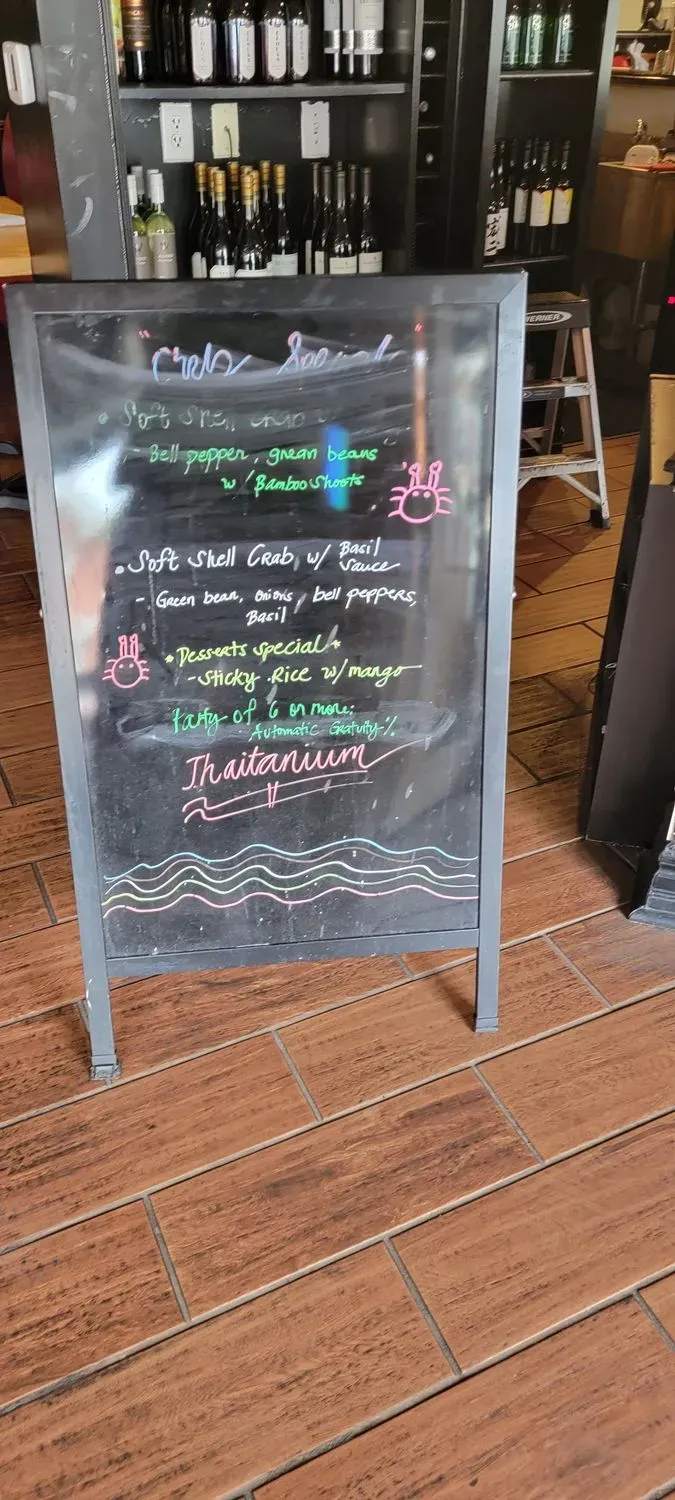 "Crab Special"
• Soft Shell Crab
- Bell pepper, grean beans
w/ Bamboo Shoots
• Soft Shell Crab w/ Basil
Sauce
- Green bean, onions, bell peppers,
Basil
* Desserts special *
- Sticky Rice w/ mango
Party of 6 or more:
Automatic Gratuity %
Thaitanium
WERNER